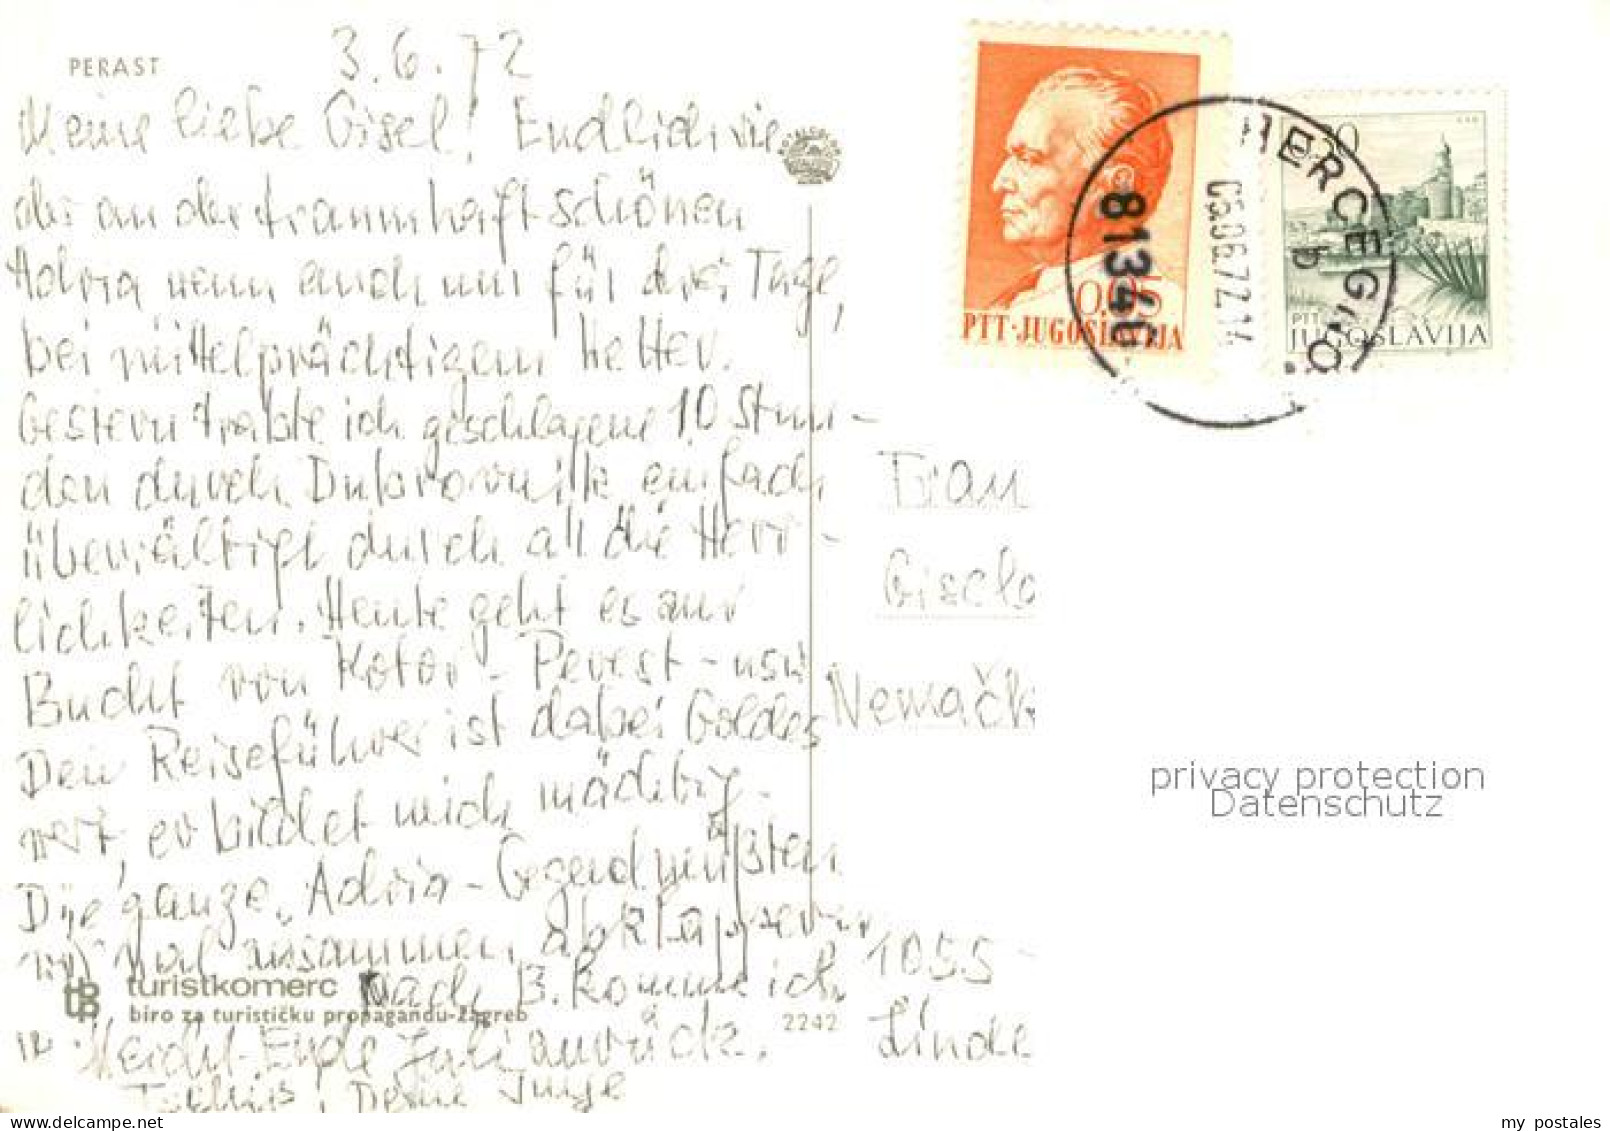 PERAST
3.6.72
Meine liebe Gisel! Endlich wie
der an der traumhaft schönen
Adria wenn auch nur für drei Tage,
bei mittelprächtigem Wetter.
Gestern trabte ich geschlagene 10 Stun-
den durch Dubrovnik einfach
überwältigt durch all die Herr-
lichkeiten. Heute geht es zur
Bucht von Kotor - Perast - usw
Dein Reiseführer ist dabei Goldes
wert, er bildet mich mächtig.
Die ganze Adria-Gegend müßten
wir mal zusammen abklappern
Nach B. komme ich
nicht Ende Juli zurück.
Tschüs, Deine Inge
turistkomerc
biro za turističku propagandu-Zagreb
2242
0.05
PTT-JUGOSLAVIJA
30
PTT
JUGOSLAVIJA
HERCEGNO
b
81340
03.06.72.17
Frau
Gisela
Nemačk
1055
Linde
privacy protection
Datenschutz
my postales
www.delcampe.net